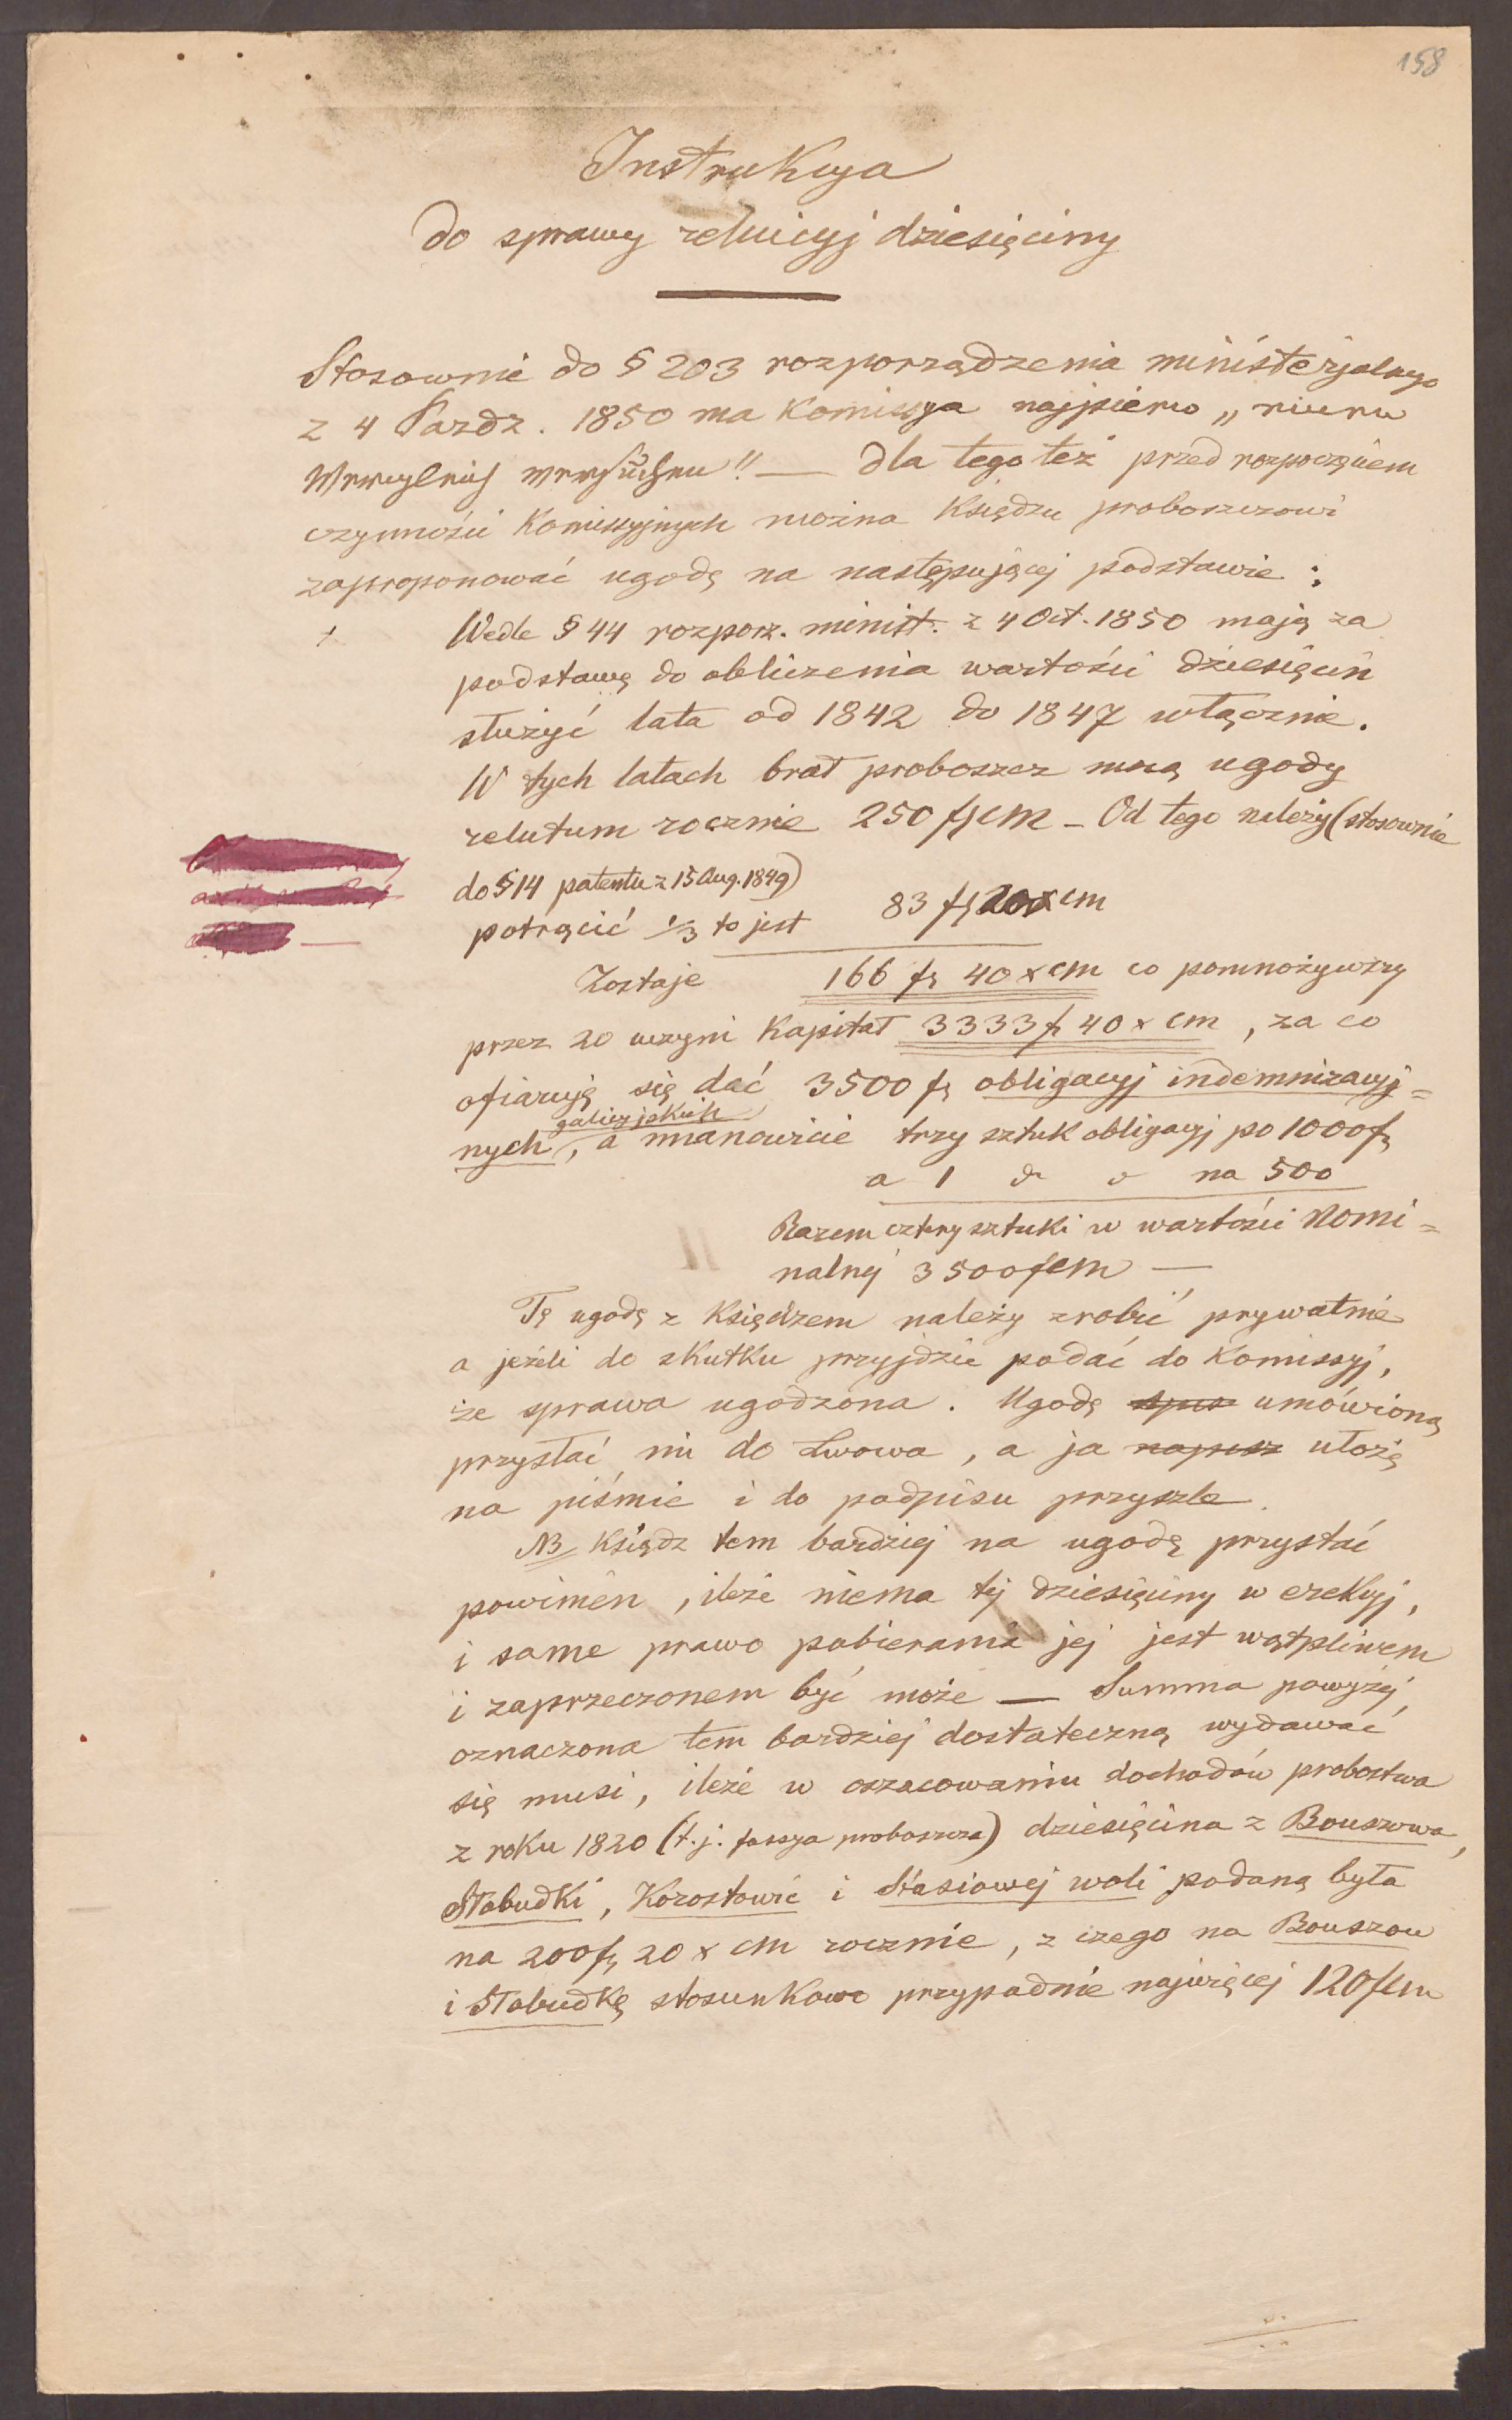 158
Instrukcya
do sprawy reluicyj dziesięciny
Stosownie do § 203 rozporządzenia ministerjalnego
z 4 Pazdz. 1850 ma Komissya najpierw „
" — dla tego też przed rozpoczęciem
czynności Komissyjnych można Księdzu proboszczowi
zaproponować ugodę na następującej podstawie :
Wedle § 44 rozporz. minist. z 4 Oct. 1850 mają za
podstawę do obliczenia wartości dziesięcin
służyć lata od 1842 do 1847 włącznie.
W tych latach brał proboszcz mocą ugody
relutum rocznie 250 fr cm – Od tego należy (stosownie
do § 14 patentu z 15 Aug. 1849)
potrącić 1/3 to jest 83 fr 20 x cm
Zostaje 166 fr 40 x cm co pomnożywszy
przez 20 uczyni Kapitał 3333 fr 40 x cm , za co
ofiaruję się dać 3500 fr obligacyj indemnizacyj=
galicyjskich
nych, a mianowicie trzy sztuk obligacyj po 1000 fr
a 1 na 500
Razem cztery sztuki w wartości Nomi=
nalnej 3500 f cm —
Tę ugodę z Księdzem należy zrobić prywatnie
a jeżeli do skutku przyjdzie podać do Komissyj,
że sprawa ugodzona. Ugodę spis umówioną
przysłać mi do Lwowa, a ja napisz ułożę
na piśmie i do podpisu przyszlę.
NB Ksiądz tem bardziej na ugodę przystać
powinien, ileże niema tej dziesięciny w erekcyj,
i same prawo pobierania jej jest wątpliwem
i zaprzeczonem być może — Summa powyżej
oznaczona tem bardziej dostateczną wydawać
się musi, ileże w oszacowaniu dochodów probostwa
z roku 1820 (t.j. fassya proboszcza) dziesięcina z Bouszowa,
Słobudki, Korostowic i Stasiowej woli podaną była
na 200 fr 20 x cm rocznie, z czego na Bouszow
i Słobudkę stosunkowo przypadnie najwięcej 120 f cm